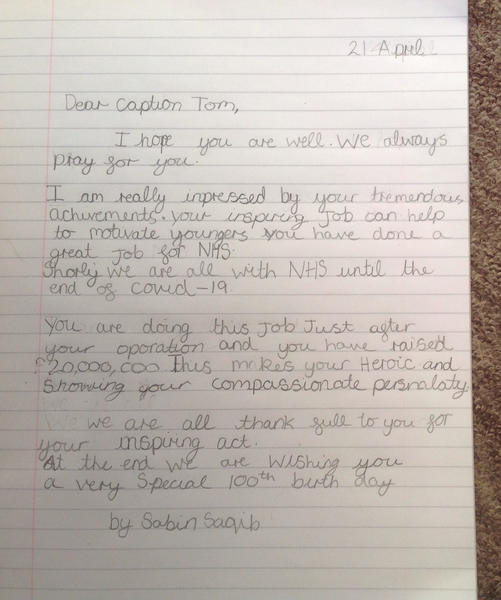 21 April
Dear Caption Tom,
I hope you are well. We always
pray for you.
I am really inpressed by your tremendous
achivements. your inspiring Job can help
to motivate youngers you have done a
great job for NHS.
Shorly we are all with NHS until the
end of Covid-19.
You are doing this Job Just after
your oporation and you have raised
£20,000,000 This makes your Heroic and
Showing your compassionate persnalaty.
We we are all thank full to you for
your inspiring act.
At the end we are Wishing you
a very Special 100th birth day
by Sabin Saqib